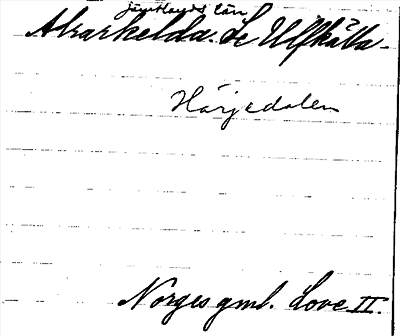 jämtlands län
Alvarkelda. Se Ulfkälla.
Härjedalen
Norges gml. Love II.